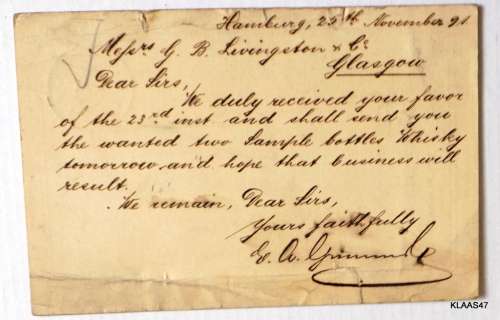 Hamburg, 25th November 91.
Messrs G. B. Livingston & Co
Glasgow
Dear Sirs,
We duly received your favor
of the 23rd inst and shall send you
the wanted two Sample bottles Whisky
tomorrow and hope that business will
result.
We remain, Dear Sirs,
Yours faithfully
E. A.
KLAAS47